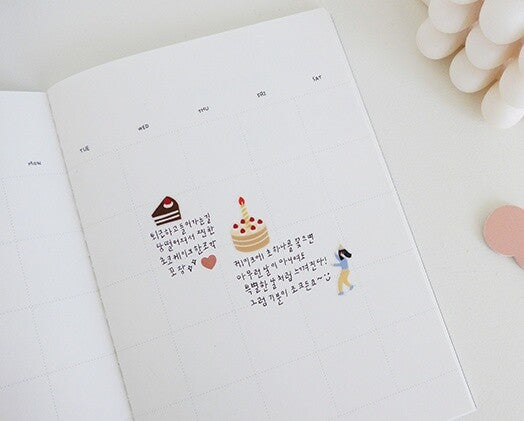 MON
TUE
WED
THU
FRI
SAT
퇴근하고 돌아가는 길
당 떨어져서 찐한
초코케이크 한 조각
포장
케이크에 초 하나를 꽂으면
아무런 날이 아니어도
특별한 날처럼 느껴진다!
그럼 기분이 초코든요~